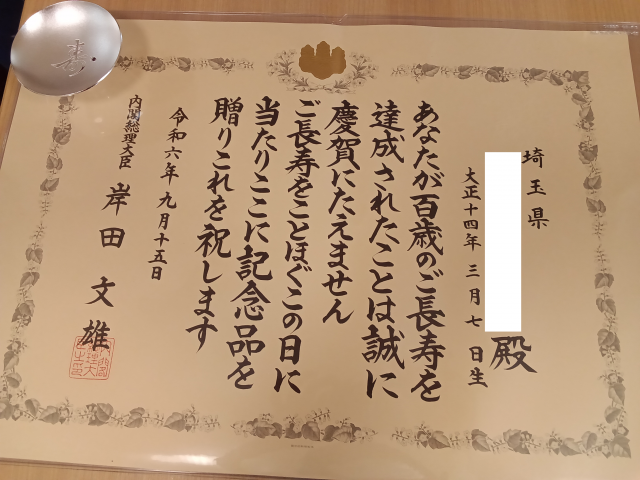 埼玉県
殿
大正十四年三月七日生
あなたが百歳のご長寿を
達成されたことは誠に
慶賀にたえません
ご長寿をことほぐこの日に
当たりここに記念品を
贈りこれを祝します
令和六年九月十五日
内閣総理大臣
岸田文雄
寿